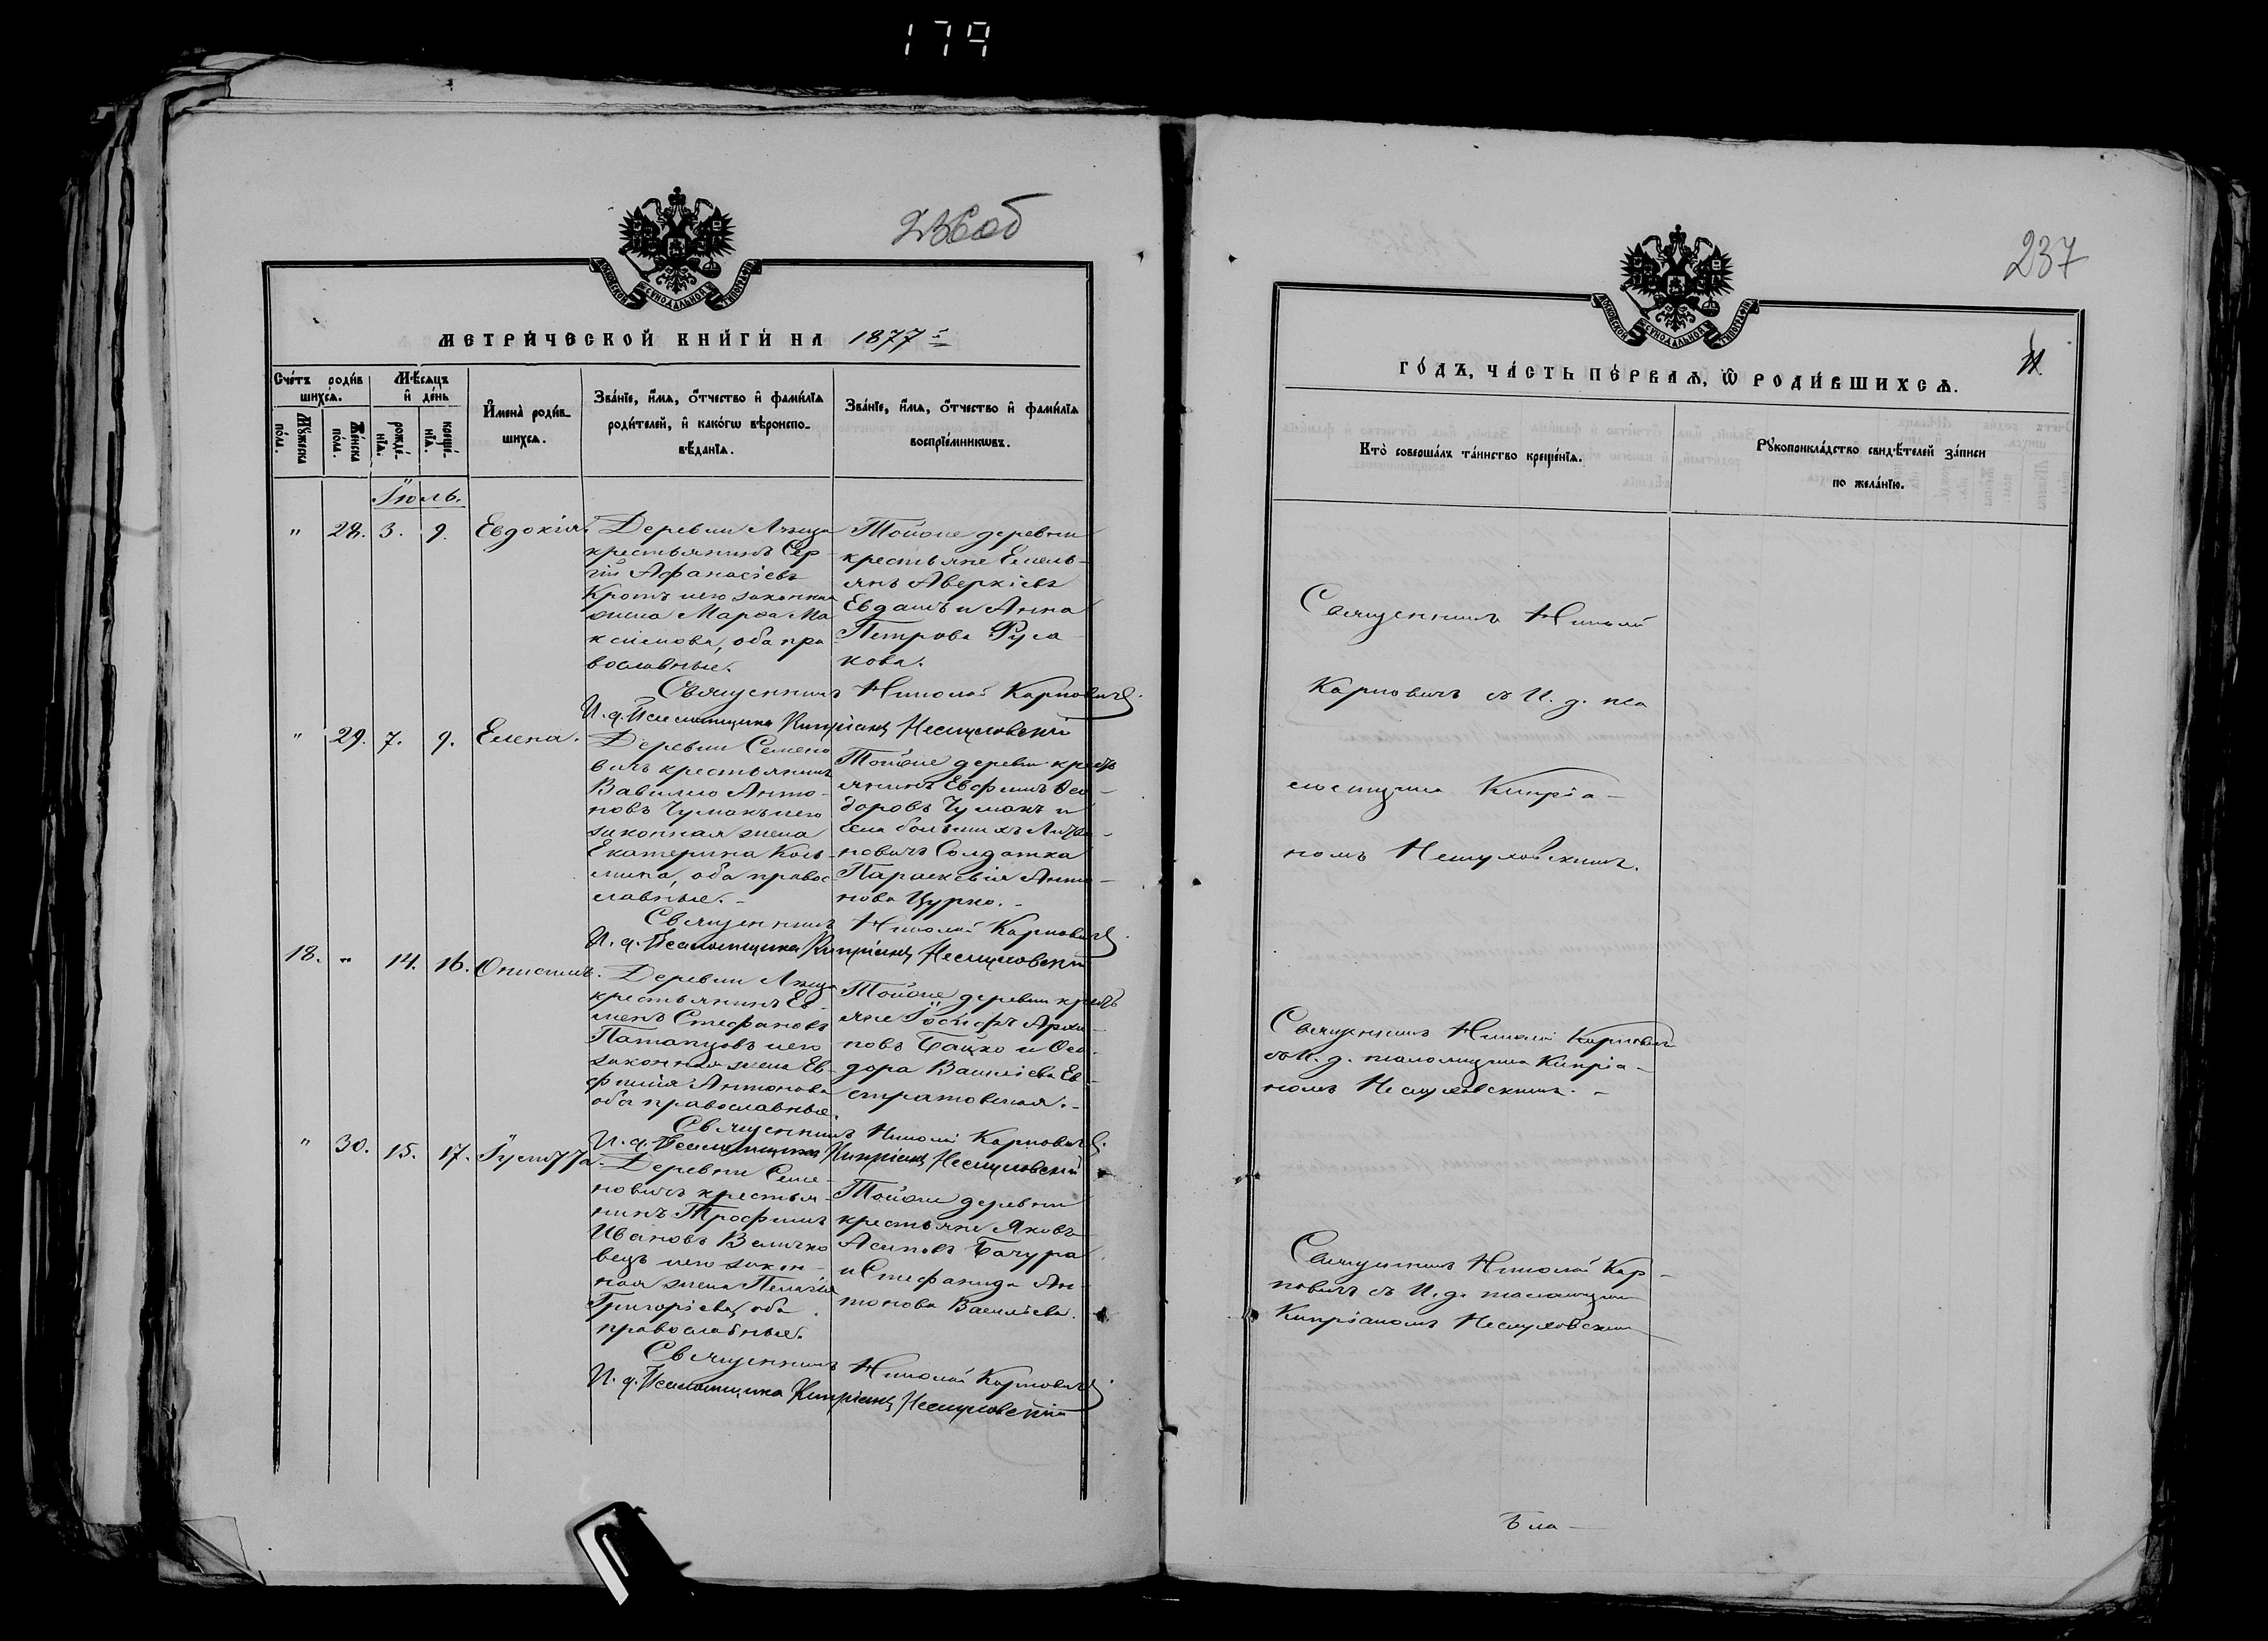 179
236об
МОСКОВСКОЙ СѴНОДАЛЬНОЙ ТИПОГРАФІИ
МЕТРИ́ЧЕСКОЙ КНИ́ГИ НА 1877 г.
Сче́тъ роди́в
шихсѧ.
Мꙋ́жеска
по́ла.
Же́нска
по́ла.
Мѣ́сѧцъ
и҆ де́нь
рожде́-
нїѧ.
креще́-
нїѧ.
И҆мена̀ роди́в-
шихсѧ.
Зва́нїе, и҆́мѧ, ѻ҆́тчество и҆ фами́лїѧ
роди́телей, и҆ како́гѡ вѣроиспо-
вѣ́данїѧ.
Зва́нїе, и҆́мѧ, ѻ҆́тчество и҆ фами́лїѧ
воспрїе́мникѡвъ.
Іюль.
" 28. 3. 9. Евдокія.
Деревни
крестьянинъ Сер-
гій Афанасіевъ
Кротъ и его законная
жена Марѳа Ма
ксимова, оба пра
вославные.
Тойже деревни
крестьяне Емель-
янъ Аверкіевъ
Евдашъ и Анна
Петрова Руса
кова.
Священникъ Николай Карповичъ.
И. д. Псаломщика Кипріанъ Несцуловскій
" 29. 7. 9. Елена.
Деревни Семено
вичъ крестьянинъ
Вавило Анто-
новъ Чумакъ и его
законная жена
Екатерина Кось-
мина, оба правос-
лавные. -
Тойже деревни кресть
янинъ Евфимъ Ѳео-
доровъ Чумакъ и
села большихъ
новичъ Солдатка
Параскевія Анто-
нова Цурко. -
Священникъ Николай Карповичъ.
И. д. Псаломщика Кипріанъ Несцуловскій
18. " 14. 16. Онисимъ.
Деревни
крестьянинъ Ев-
менъ Стефановъ
Патапцовъ и его
законная жена Ев-
фимія Антонова
оба православные.
Тойже деревни кресть
яне Іосифъ Архи-
повъ Бацко и Ѳео-
дора Василіева Ев-
стратовская. -
Священникъ Николай Карповичъ.
И. д. Псаломщика Кипріанъ Несцуловскій
" 30. 15. 17. Іулитта.
Деревни Семе-
новичъ крестья-
нинъ Трофимъ
Ивановъ Величко
вецъ и его закон-
ная жена Пелагія
Григоріева, оба
православные.
Тойже деревни
крестьяне Яковъ
Асиповъ Бачура
и Стефанида Ан-
тонова Василіева.
Священникъ Николай Карповичъ.
И. д. Псаломщика Кипріанъ Несцуловскій
237
МОСКОВСКОЙ СѴНОДАЛЬНОЙ ТИПОГРАФІИ
ГО́ДЪ, ЧА́СТЬ ПЕ́РВАѦ, Ѡ҆ РОДИ́ВШИХСѦ.
Кто̀ соверша́лъ та́инство креще́нїѧ.
Рꙋкоприкла́дство свидѣ́телей за́писи
по жела́нїю.
Священникъ Николай
Карповичъ съ И. д. пса
ломщика Кипріа-
номъ Несцуловскимъ.
Священникъ Николай Карповичъ
съ И. д. псаломщика Кипріа-
номъ Несцуловскимъ. -
Священникъ Николай Кар-
повичъ съ И. д. псаломщика
Кипріаномъ Несцуловскимъ